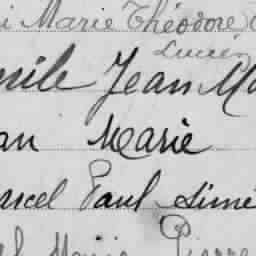 i Marie Théodore
Lucien
mile Jean Ma
an Marie
arcel Paul Simé
Marie Pierre